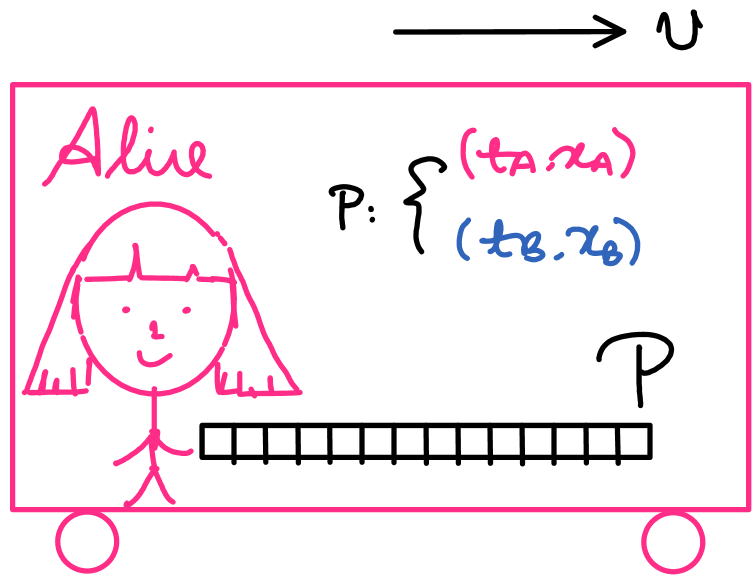 v
Alice
P: { (tA, xA)
(tB, xB)
P